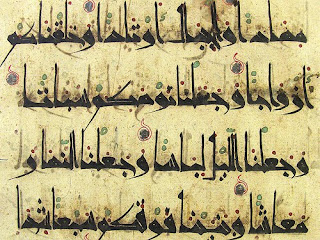 مهادا والجبال اوتادا وخلقنكم
ازواجا وجعلنا نومكم سباتا
وجعلنا اليل لباسا وجعلنا النهار
معاشا وبنينا فوقكم سبعا شدادا